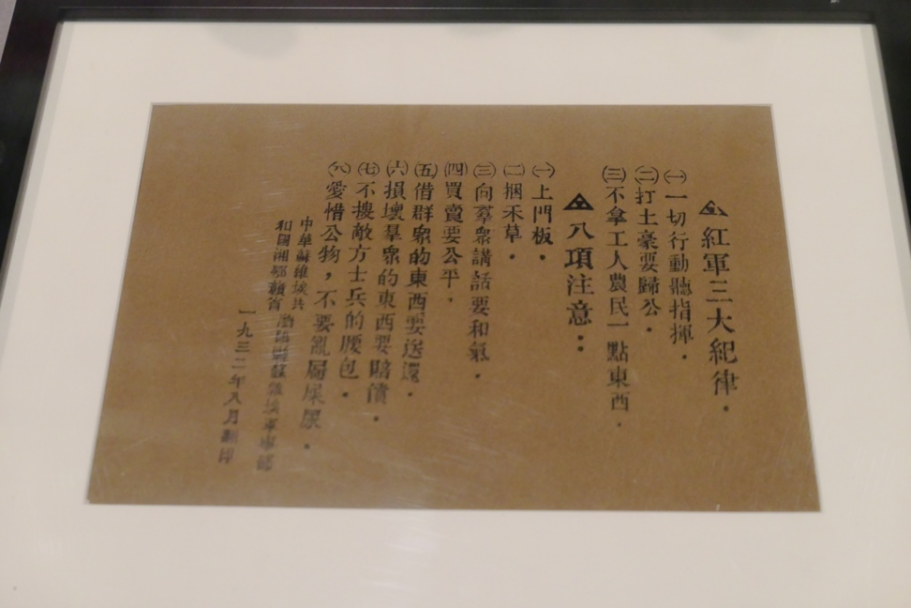 紅軍三大紀律.
㈠一切行動聽指揮.
㈡打土豪要歸公.
㈢不拿工人農民一點東西.
▲八項注意:
㈠上門板.
㈡捆禾草.
㈢向羣衆講話要和氣.
㈣買賣要公平.
㈤借群衆的東西要送還.
㈥損壞羣衆的東西要賠償.
㈦不搜敵方士兵的腰包.
㈧愛惜公物,不要亂屙屎尿.
中華蘇維埃共
和國湘鄂贛省
一九三二年八月翻印